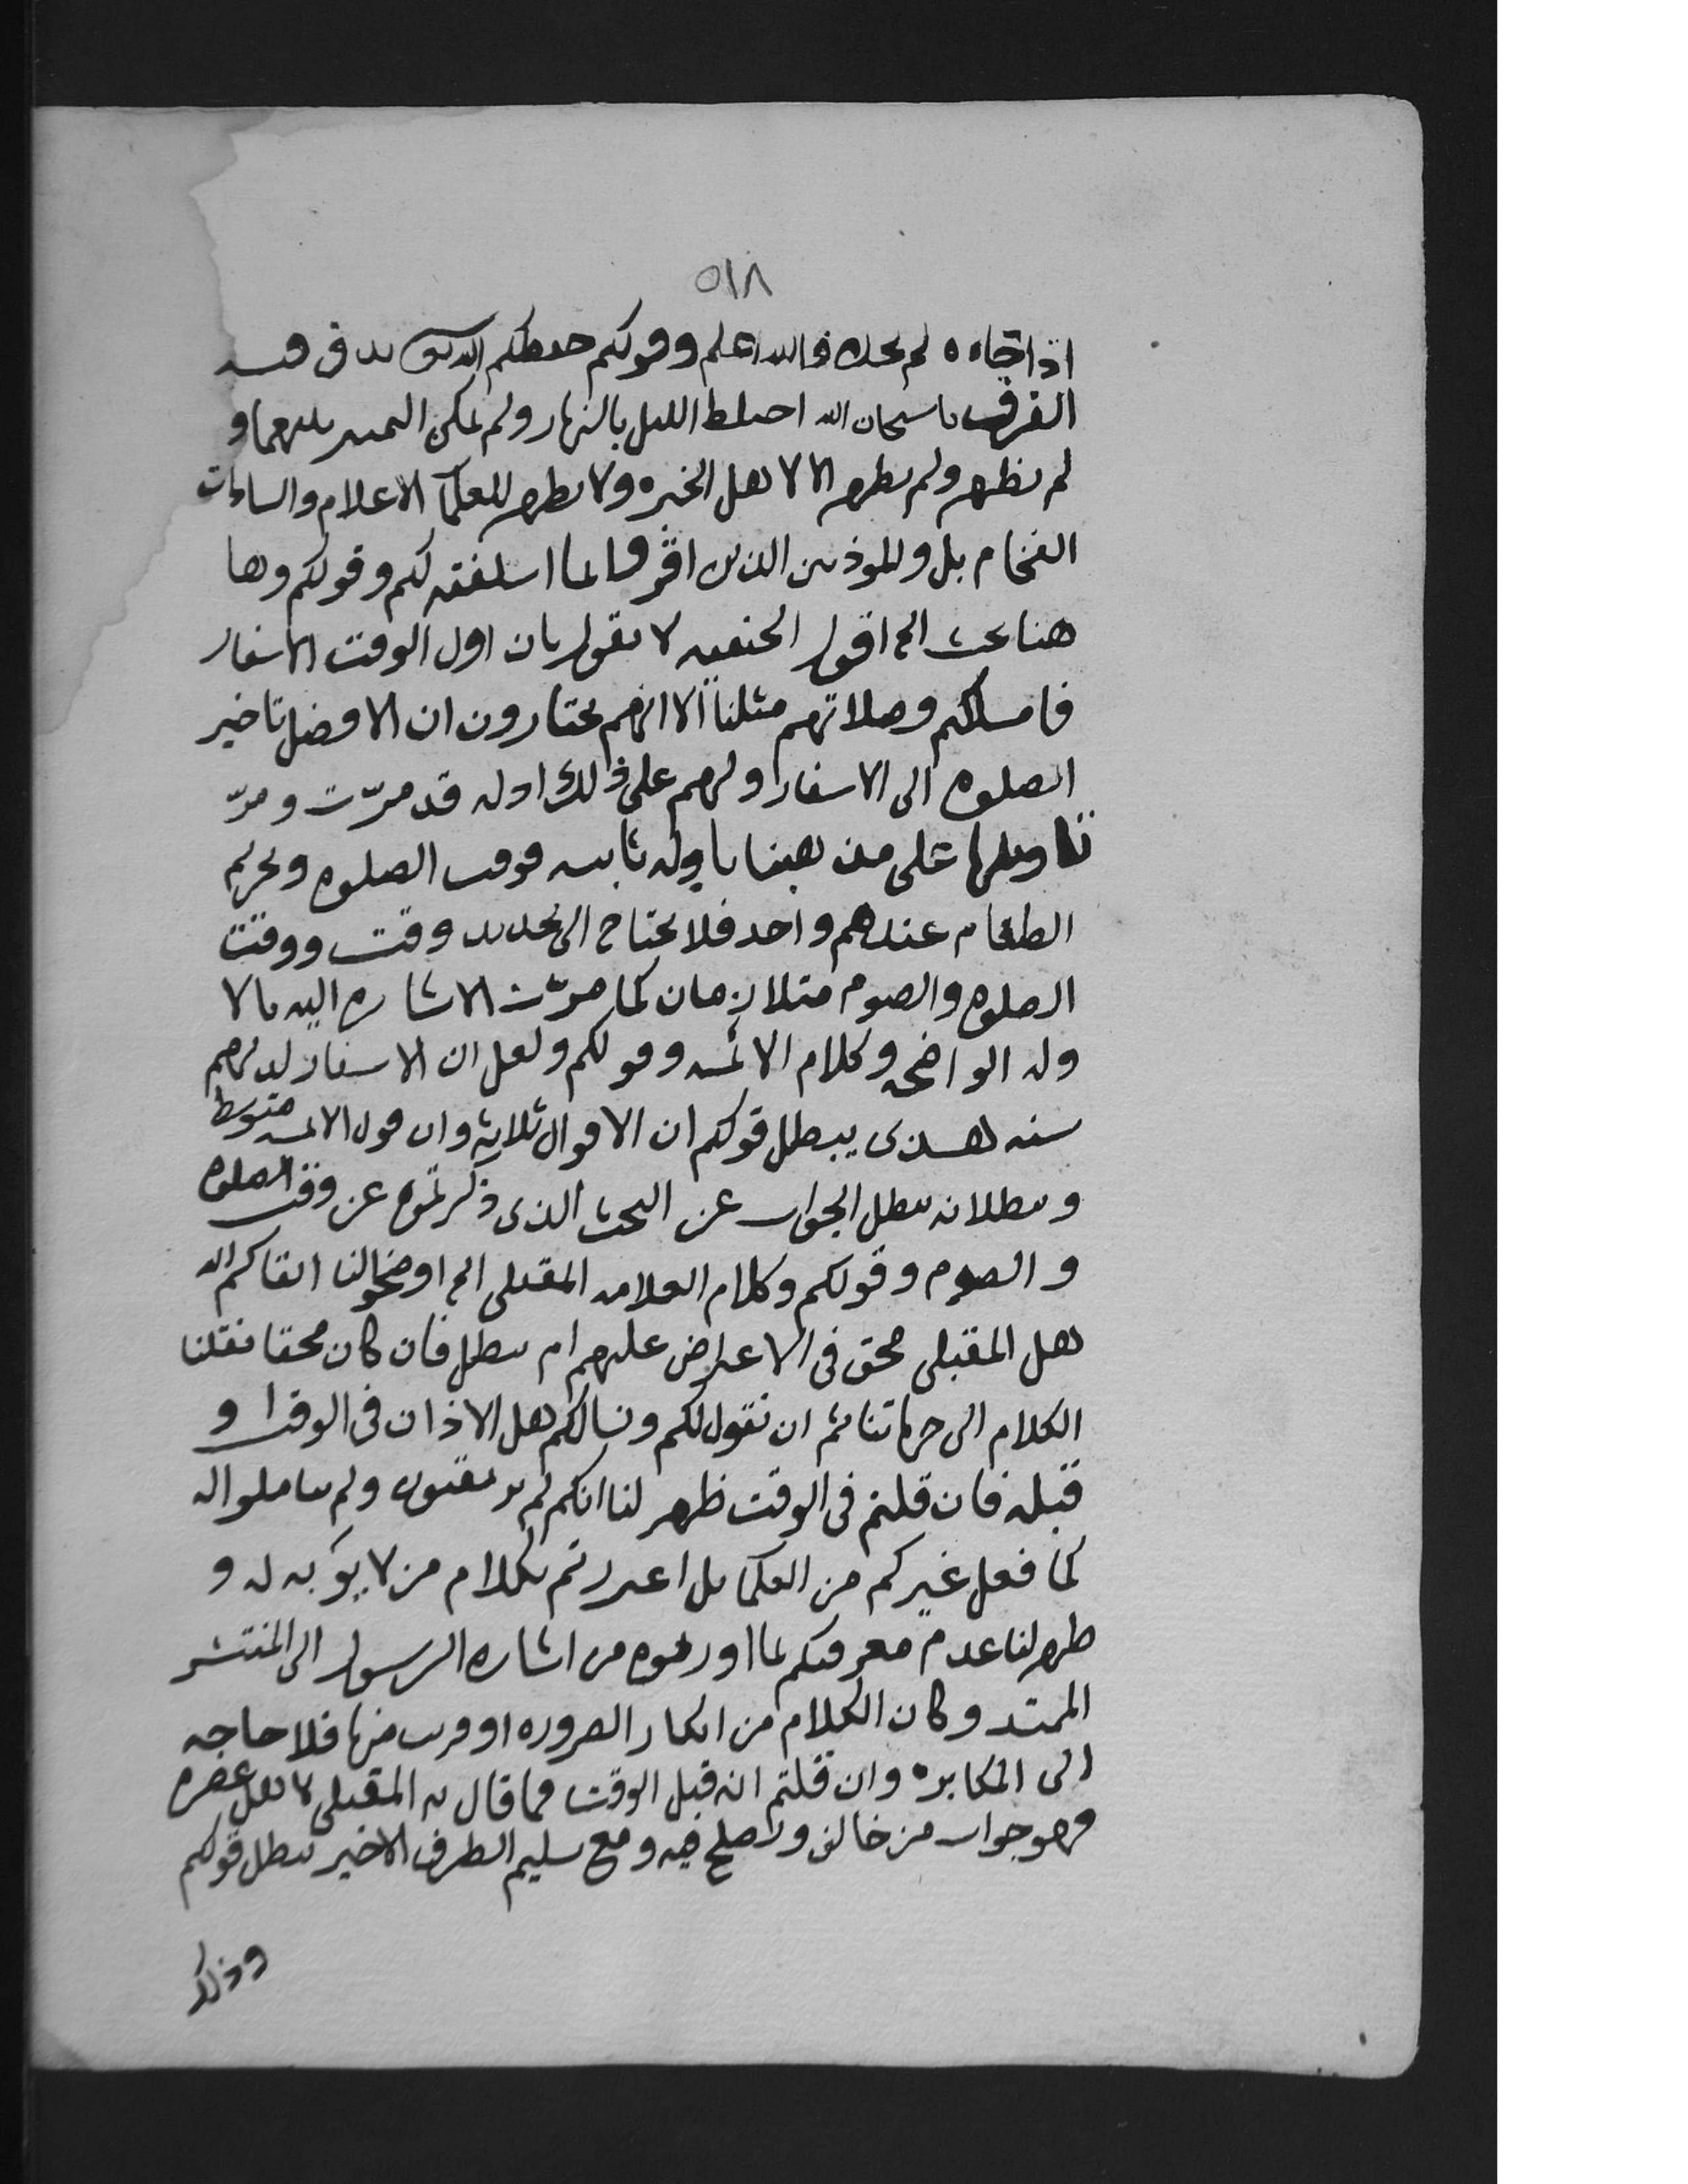 ٥١٨
اذا جاءه لم يجده والله اعلم وقولكم حفظكم الله يدق فيه
الفرق يا سبحان الله اختلط الليل بالنهار ولم يمكن التمييز بينهما و
لم يظهر ولم يظهر الا لاهل الخبره ولا يظهر للعلمآ الاعلام والسادات
الفخام بل وللموذنين الذين اقروا بما اسلفته لكم وقولكم وها
هنا بحث الخ اقول الحنفيه لا يقول بان اول الوقت الاسفار
فامساكهم وصلاتهم مثلنا الا انهم يختارون ان الافضل تاخير
الصلوه الى الاسفار ولهم على ذلك ادله قد مرّت ومرّ
تاويلها على من بادله ثابته فوقت الصلوه وتحريم
الطعام عندهم واحد فلا يحتاج الى تحديد وقت ووقت
الصلوه والصوم متلازمان كما مرّت الاشاره اليه بالا
دله الواضحه وكلام الائمه وقولكم ولعل ان الاسفار لديهم
سنه يبطل قولكم ان الاقوال ثلاثه وان قول الائمه متوسط
وببطلانه يبطل الجواب عن البحث الذى ذكرتموه عن وقت الصلوه
والصوم وقولكم وكلام العلامه المقبلى الخ اوضحوا لنا ابقاكم الله
هل المقبلى محق فى الاعتراض عليهم ام مبطل فان كان محقا نقلنا
الكلام الى جهاتنا ثم ان نقول لكم ونسالكم هل الاذان فى الوقت او
قبله فان قلتم فى الوقت ظهر لنا انكم لم ولم تتاملوا له
كما فعل غيركم من العلمآ بل اعتذرتم بكلام من لا يوبه له و
ظهر لنا عدم معرفتكم لما اوردتموه من اشاره الرسول الى المنتشر
الممتد وكان الكلام من انكار الضروره او قريب منها فلا حاجه
الى المكابره وان قلتم انه قبل الوقت فما قال به المقبلى لاهل عصره
فهو جواب من خالف فيه ومع تسليم الطرف الاخير يبطل قولكم
وذلك